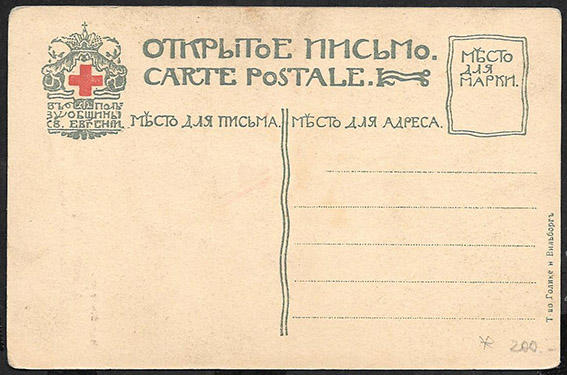 ОТКРЫТОЕ ПИСЬМО.
CARTE POSTALE.
МѢСТО
ДЛЯ
МАРКИ.
ВЪ ПОЛЬ
ЗУ ОБЩИНЫ
СВ. ЕВГЕНІИ.
МѢСТО ДЛЯ ПИСЬМА.
МѢСТО ДЛЯ АДРЕСА.
Т-во Голике и Вильборгъ
200.-